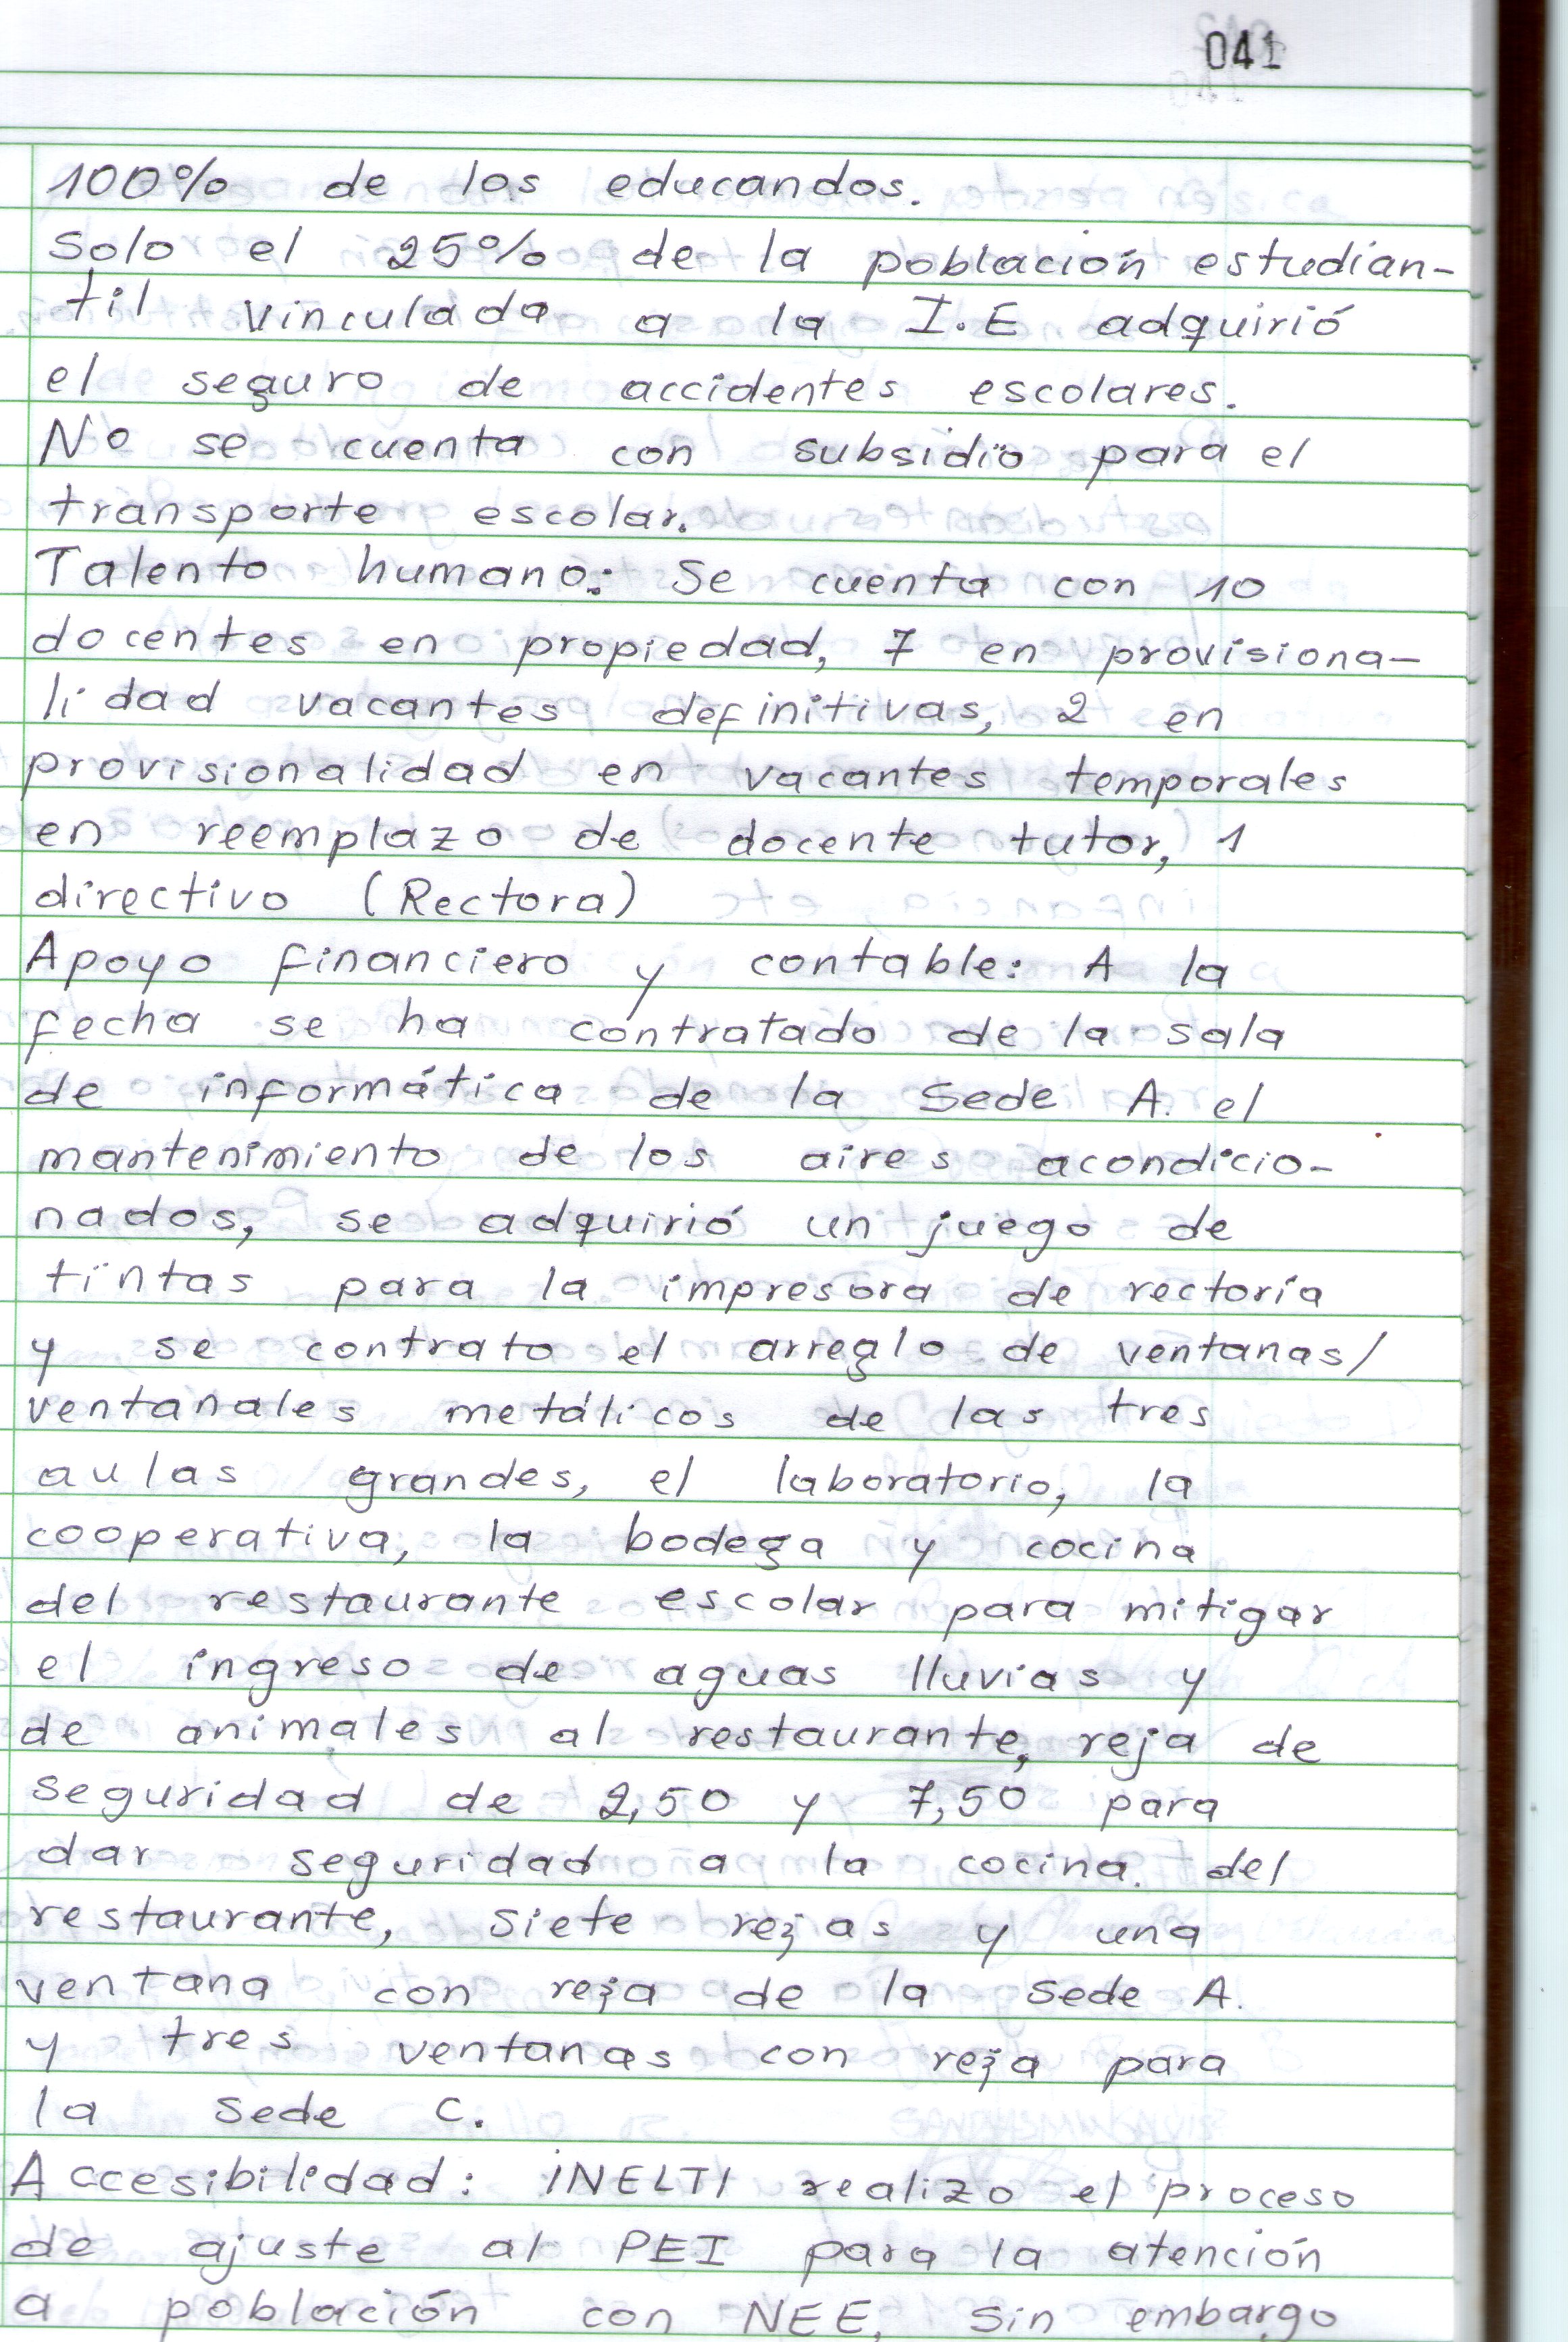 041
100% de los educandos.
Solo el 25% de la población estudian-
til vinculada a la I.E adquirió
el seguro de accidentes escolares.
No se cuenta con subsidio para el
transporte escolar.
Talento humano: Se cuenta con 10
docentes en propiedad, 7 en provisiona-
lidad vacantes definitivas, 2 en
provisionalidad en vacantes temporales
en reemplazo de docente tutor, 1
directivo (Rectora)
Apoyo financiero y contable: A la
fecha se ha contratado de la sala
de informática de la Sede A. el
mantenimiento de los aires acondicio-
nados, se adquirió un juego de
tintas para la impresora de rectoría
y se contrato el arreglo de ventanas/
ventanales metálicos de las tres
aulas grandes, el laboratorio, la
cooperativa, la bodega y cocina
del restaurante escolar para mitigar
el ingreso de aguas lluvias y
de animales al restaurante, reja de
seguridad de 2,50 y 7,50 para
dar seguridad a la cocina. del
restaurante, siete rejas y una
ventana con reja de la Sede A.
y tres ventanas con reja para
la Sede C.
Accesibilidad: INELTI realizo el proceso
de ajuste al PEI para la atención
a población con NEE, sin embargo